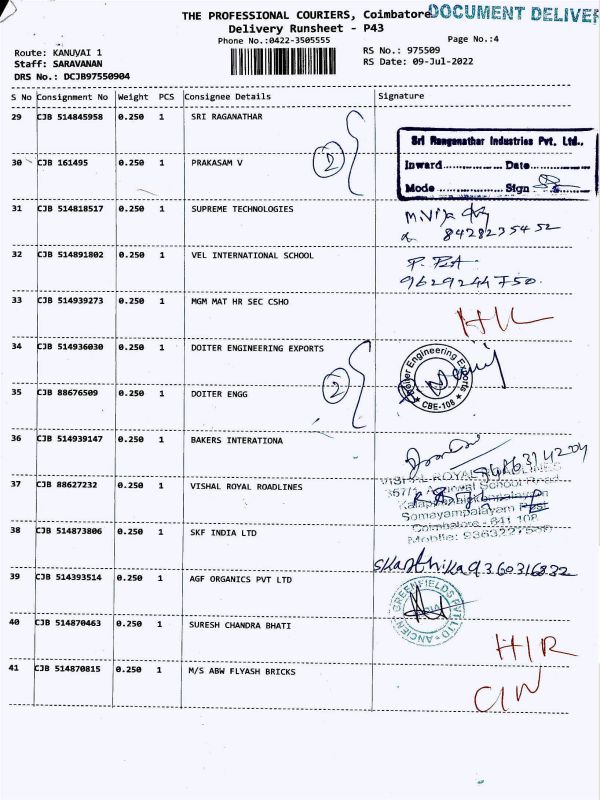 THE PROFESSIONAL COURIERS, Coimbatore
DOCUMENT DELIVER
Delivery Runsheet - P43
Phone No.:0422-3505555
Page No.:4
Route: KANUVAI 1
Staff: SARAVANAN
DRS No.: DCJB97550904
RS No.: 975509
RS Date: 09-Jul-2022
S No Consignment No Weight PCS Consignee Details Signature
29 CJB 514845958 0.250 1 SRI RAGANATHAR
Sri Ranganathar Industries Pvt. Ltd.,
Inward............... Date...............
Mode ............... Sign ...............
2
30 CJB 161495 0.250 1 PRAKASAM V
31 CJB 514818517 0.250 1 SUPREME TECHNOLOGIES
8428235452
32 CJB 514891802 0.250 1 VEL INTERNATIONAL SCHOOL
9629244750
33 CJB 514939273 0.250 1 MGM MAT HR SEC CSHO
34 CJB 514936030 0.250 1 DOITER ENGINEERING EXPORTS
Doiter Engineering Exports
★ CBE-108 ★
2
35 CJB 88676509 0.250 1 DOITER ENGG
36 CJB 514939147 0.250 1 BAKERS INTERNATIONA
37 CJB 88627232 0.250 1 VISHAL ROYAL ROADLINES
VISHAL ROYAL ROADLINES
School Road
Somayampalayam Post
Coimbatore - 641 108
Mobile:
38 CJB 514873806 0.250 1 SKF INDIA LTD
39 CJB 514393514 0.250 1 AGF ORGANICS PVT LTD
ANCIENT GREENFIELDS PVT LTD
40 CJB 514870463 0.250 1 SURESH CHANDRA BHATI
41 CJB 514870815 0.250 1 M/S ABW FLYASH BRICKS